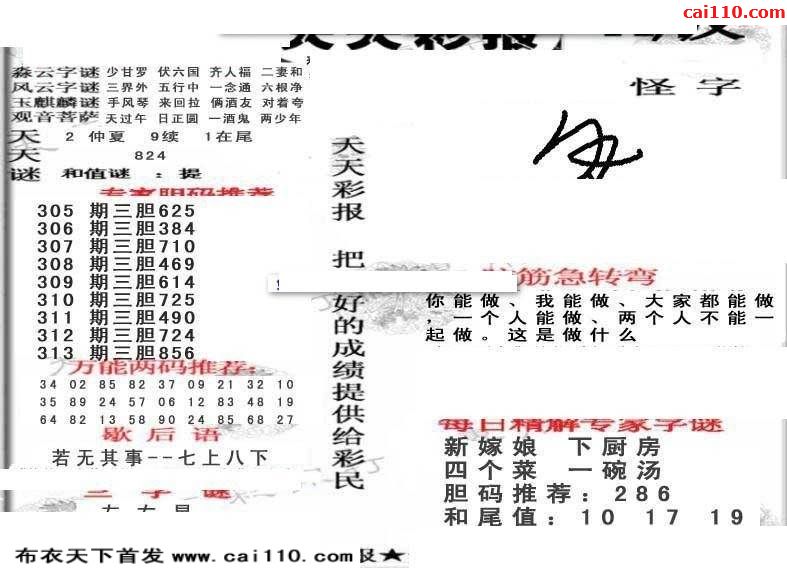 cai110.com
天天彩报
淼云字谜 少甘罗 伏六国 齐人福 二妻和
风云字谜 三界外 五行中 一念通 六根净
玉麒麟谜 手风琴 来回拉 俩酒友 对着夸
观音菩萨 天过午 日正圆 一酒鬼 两少年
天 2 仲夏 9续 1在尾
天 824
谜 和值谜 : 提
专家胆码推荐
305 期三胆625
306 期三胆384
307 期三胆710
308 期三胆469
309 期三胆614
310 期三胆725
311 期三胆490
312 期三胆724
313 期三胆856
万能两码推荐:
34 02 85 82 37 09 21 32 10
35 89 24 57 06 12 83 48 19
64 82 13 58 90 24 85 68 27
歇后语
若无其事--七上八下
三字谜
天天彩报 把 好的成绩提供给彩民
怪字
筋急转弯
你能做、我能做、大家都能做
，一个人能做、两个人不能一
起做。这是做什么
每日精解专家字谜
新嫁娘 下厨房
四个菜 一碗汤
胆码推荐: 286
和尾值: 10 17 19
布衣天下首发 www.cai110.com